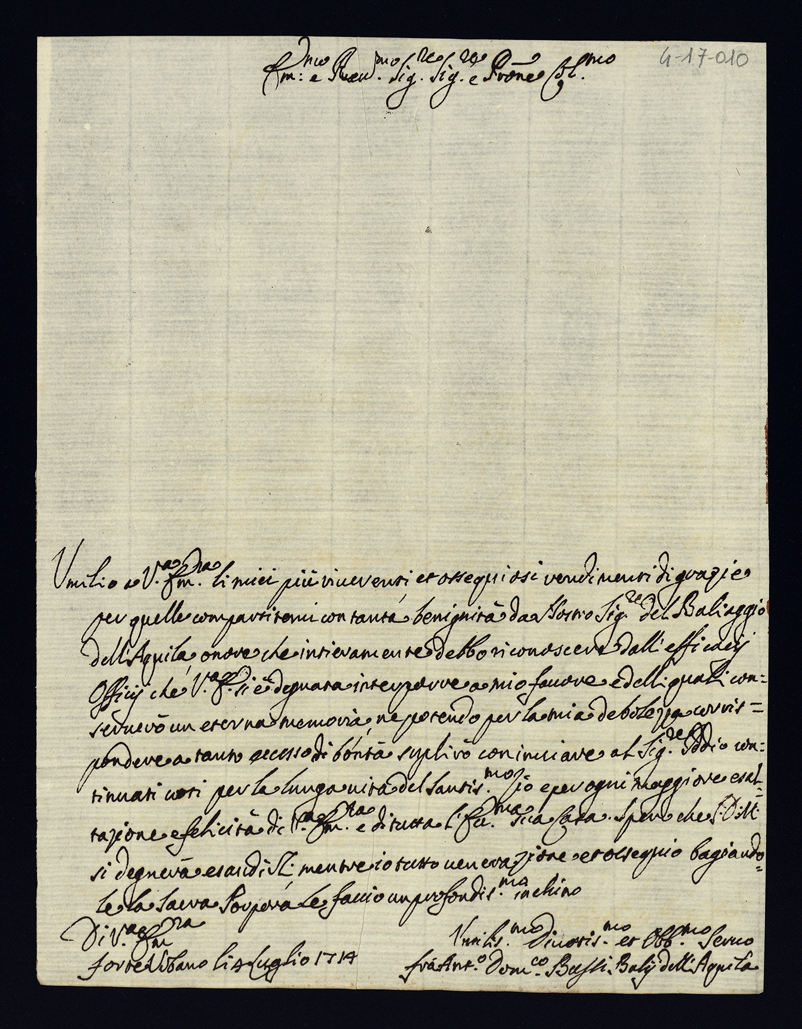 4-17-010
Em:mo e Reu.mo Sig.re Sig.re e Prone Col.mo
Vmilio a V.a Em.za li miei più riuerenti et ossequiosi rendimenti di grazie
per quelle compartitemi con tantà benignità da Nostro Sig.re del Baliaggio
dell'Aquilà, onore che intieramente debbo riconoscere dall'efficacij
Officij che V.a E. si è degnata interporre a mio fauore e delli quali con=
seruerò un eterna memoria, ne potendo per la mia debolezza corris=
pondere a tanto eccesso di bontà suplirò con inuiare al Sig.re Iddio con=
tinuati uoti per la lunga uita del Santis.mo e per ogni maggiore esal=
tazione e felicità di V.a Em.za e di tutta l'Ecc.ma sua Casa. Spero che S. D. M.
si degnerà esaudirli, mentre io tutto uenerazione et ossequio bagiando=
le la Sacra Porpora le faccio un profondis.mo inchino
Di V.a Em.za
Vmilis.mo Diuotis.mo et Obb.mo Seruo
forte Vrbano li 4 luglio 1714
frà Ant.o Dom.co Bussi Balij dell'Aquila